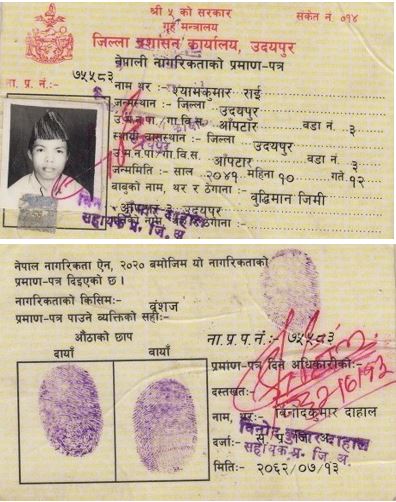 श्री ५ को सरकार
संकेत नं. ०१४
गृह मन्त्रालय
जिल्ला प्रशासन कार्यालय, उदयपुर
नेपाली नागरिकताको प्रमाण-पत्र
ना. प्र. नं.:- ७५५८३
नाम थर :- श्यामकुमार राई
जन्मस्थान :- जिल्ला उदयपुर
उ.म.न.पा./गा.वि.स. आँपटार वडा नं. ३
स्थायी वासस्थान :- जिल्ला उदयपुर
उ.म.न.पा./गा.वि.स. आँपटार वडा नं. ३
जन्ममिति :- साल २०४१ महिना १० गते १२
बाबुको नाम, थर र ठेगाना :- बुद्धिमान जिमी
आँपटार ३ उदयपुर
नाम, थर र ठेगाना :-
सहायक प्र. जि. अ.
नेपाल नागरिकता ऐन, २०२० बमोजिम यो नागरिकताको
प्रमाण-पत्र दिइएको छ।
नागरिकताको किसिम:- वंशज
प्रमाण-पत्र पाउने व्यक्तिको सही:-
औंठाको छाप
दायाँ बायाँ
ना. प्र. प. नं.:- ७५५८३
प्रमाण-पत्र दिने अधिकारीको:-
दस्तखत:-
नाम, थर:- बिनोदकुमार दाहाल
बिनोद कुमार दाहाल
दर्जा:-
सहायक प्र. जि. अ.
मिति:- २०६२/०७/१३